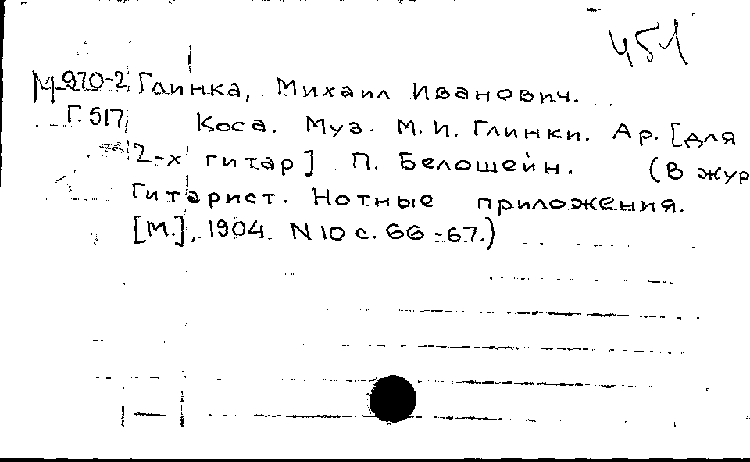 451
М 970-2 Глинка, Михаил Иванович.
Г 517 Коса. Муз. М. И. Глинки. Ар. [для
2-х гитар] П. Белошейн. (В жур
Гитарист. Нотные приложения.
[М.], 1904. N 10 с. 66-67.)